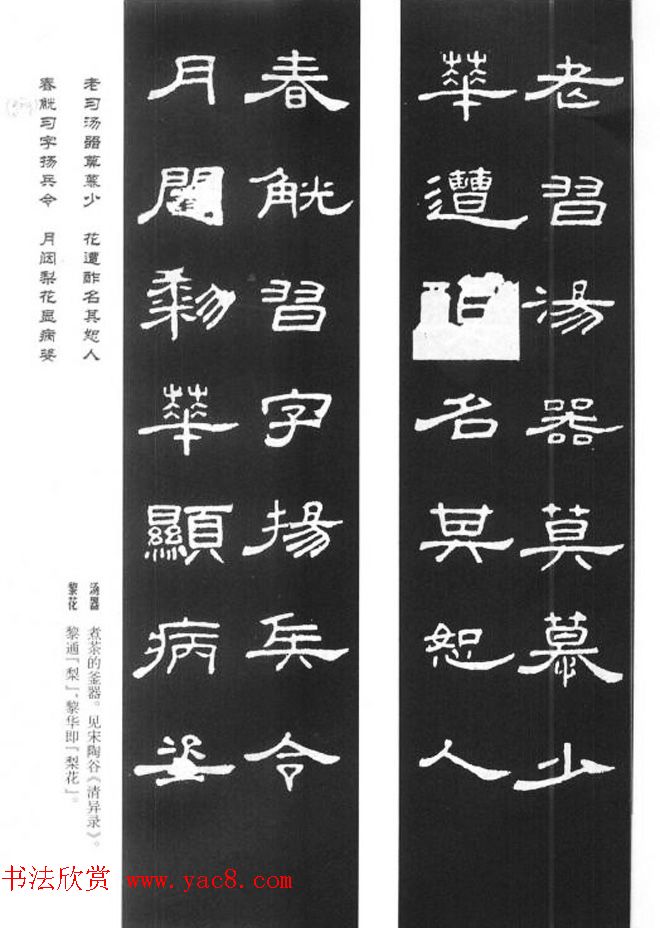 老習湯器莫慕少
華遭名其恕人
春觥習字揚兵令
月閣黎華顯病姿
老习汤器莫慕少 花遭酢名其恕人
春觥习字扬兵令 月阁梨花显病姿
汤器 煮茶的釜器。见宋陶谷《清异录》。
黎花 黎通「梨」,黎华即「梨花」。
书法欣赏 www.yac8.com